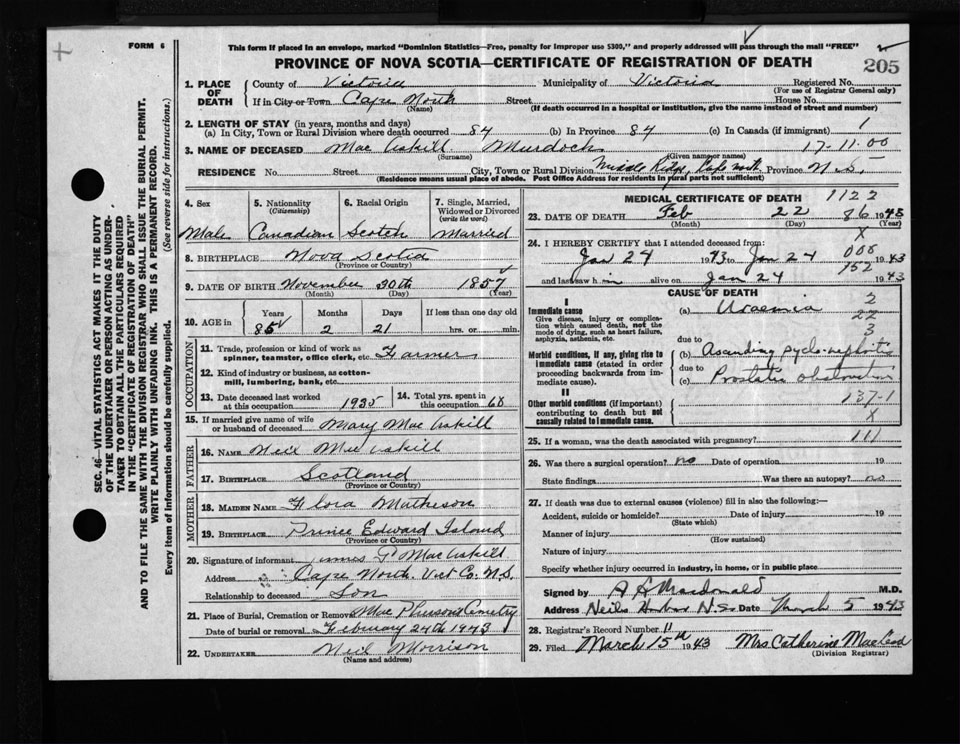 FORM 6
This form if placed in an envelope, marked "Dominion Statistics—Free, penalty for improper use $300," and properly addressed will pass through the mail "FREE"
PROVINCE OF NOVA SCOTIA—CERTIFICATE OF REGISTRATION OF DEATH
205
SEC. 46—VITAL STATISTICS ACT MAKES IT THE DUTY
OF THE UNDERTAKER OR PERSON ACTING AS UNDER-
TAKER TO OBTAIN ALL THE PARTICULARS REQUIRED
IN THE "CERTIFICATE OF REGISTRATION OF DEATH"
AND TO FILE THE SAME WITH THE DIVISION REGISTRAR WHO SHALL ISSUE THE BURIAL PERMIT.
WRITE PLAINLY WITH UNFADING INK. THIS IS A PERMANENT RECORD.
Every item of information should be carefully supplied. (See reverse side for instructions.)
1. PLACE OF DEATH County of Victoria Municipality of Victoria Registered No.
(For use of Registrar General only)
If in City or Town Cape North Street House No.
(Name) (If death occurred in a hospital or institution, give the name instead of street and number)
2. LENGTH OF STAY (in years, months and days)
(a) In City, Town or Rural Division where death occurred 84 (b) In Province 84 (c) In Canada (if immigrant) 1
3. NAME OF DECEASED Mac Askill Murdoch 17-11.00
(Surname) (Given name or names)
RESIDENCE No. Street City, Town or Rural Division Middle Ridge, Cape North Province N.S.
(Residence means usual place of abode. Post Office Address for residents in rural parts not sufficient)
4. Sex Male
5. Nationality (Citizenship) Canadian
6. Racial Origin Scotch
7. Single, Married, Widowed or Divorced (write the word) Married
8. BIRTHPLACE Nova Scotia
(Province or Country)
9. DATE OF BIRTH November 30th 1857
(Month) (Day) (Year)
10. AGE in Years Months Days If less than one day old
85 2 21 hrs. or min.
OCCUPATION
11. Trade, profession or kind of work as spinner, teamster, office clerk, etc. Farmer
12. Kind of industry or business, as cotton-mill, lumbering, bank, etc.
13. Date deceased last worked at this occupation 1935
14. Total yrs. spent in this occupation 60
15. If married give name of wife or husband of deceased Mary Mac Askill
FATHER
16. NAME Neil Mac Askill
17. BIRTHPLACE Scotland
(Province or Country)
MOTHER
18. MAIDEN NAME Flora Matheson
19. BIRTHPLACE Prince Edward Island
(Province or Country)
20. Signature of informant G. MacAskill
Address Cape North. Vict Co. N.S.
Relationship to deceased Son
21. Place of Burial, Cremation or Removal Mac Phersons Cemetry
Date of burial or removal February 24th 1943
22. UNDERTAKER Neil Morrison
(Name and address)
MEDICAL CERTIFICATE OF DEATH 1122
23. DATE OF DEATH Feb 22 86 1943
(Month) (Day) (Year)
X
24. I HEREBY CERTIFY that I attended deceased from:
Jan 24 1943 to Jan 24 000 1943
152
and last saw him alive on Jan 24 1943
CAUSE OF DEATH
I
Immediate cause
Give disease, injury or complication which caused death, not the mode of dying, such as heart failure, asphyxia, asthenia, etc.
(a) Uraemia 2
22
3
due to
Morbid conditions, if any, giving rise to immediate cause (stated in order proceeding backwards from immediate cause).
(b) Ascending pyelo-nephritis
due to
(c) Prostatic obstruction
II
Other morbid conditions (if important) contributing to death but not causally related to immediate cause.
137-1
X
25. If a woman, was the death associated with pregnancy? 111
26. Was there a surgical operation? no Date of operation 19
State findings Was there an autopsy? no
27. If death was due to external causes (violence) fill in also the following:—
Accident, suicide or homicide? Date of injury 19
(State which)
Manner of injury
(How sustained)
Nature of injury
Specify whether injury occurred in industry, in home, or in public place
Signed by Macdonald M.D.
Address Neils Harbour N.S. Date March 5 1943
28. Registrar's Record Number 11
29. Filed March 15th 1943 Mrs Catherine MacLeod
(Division Registrar)